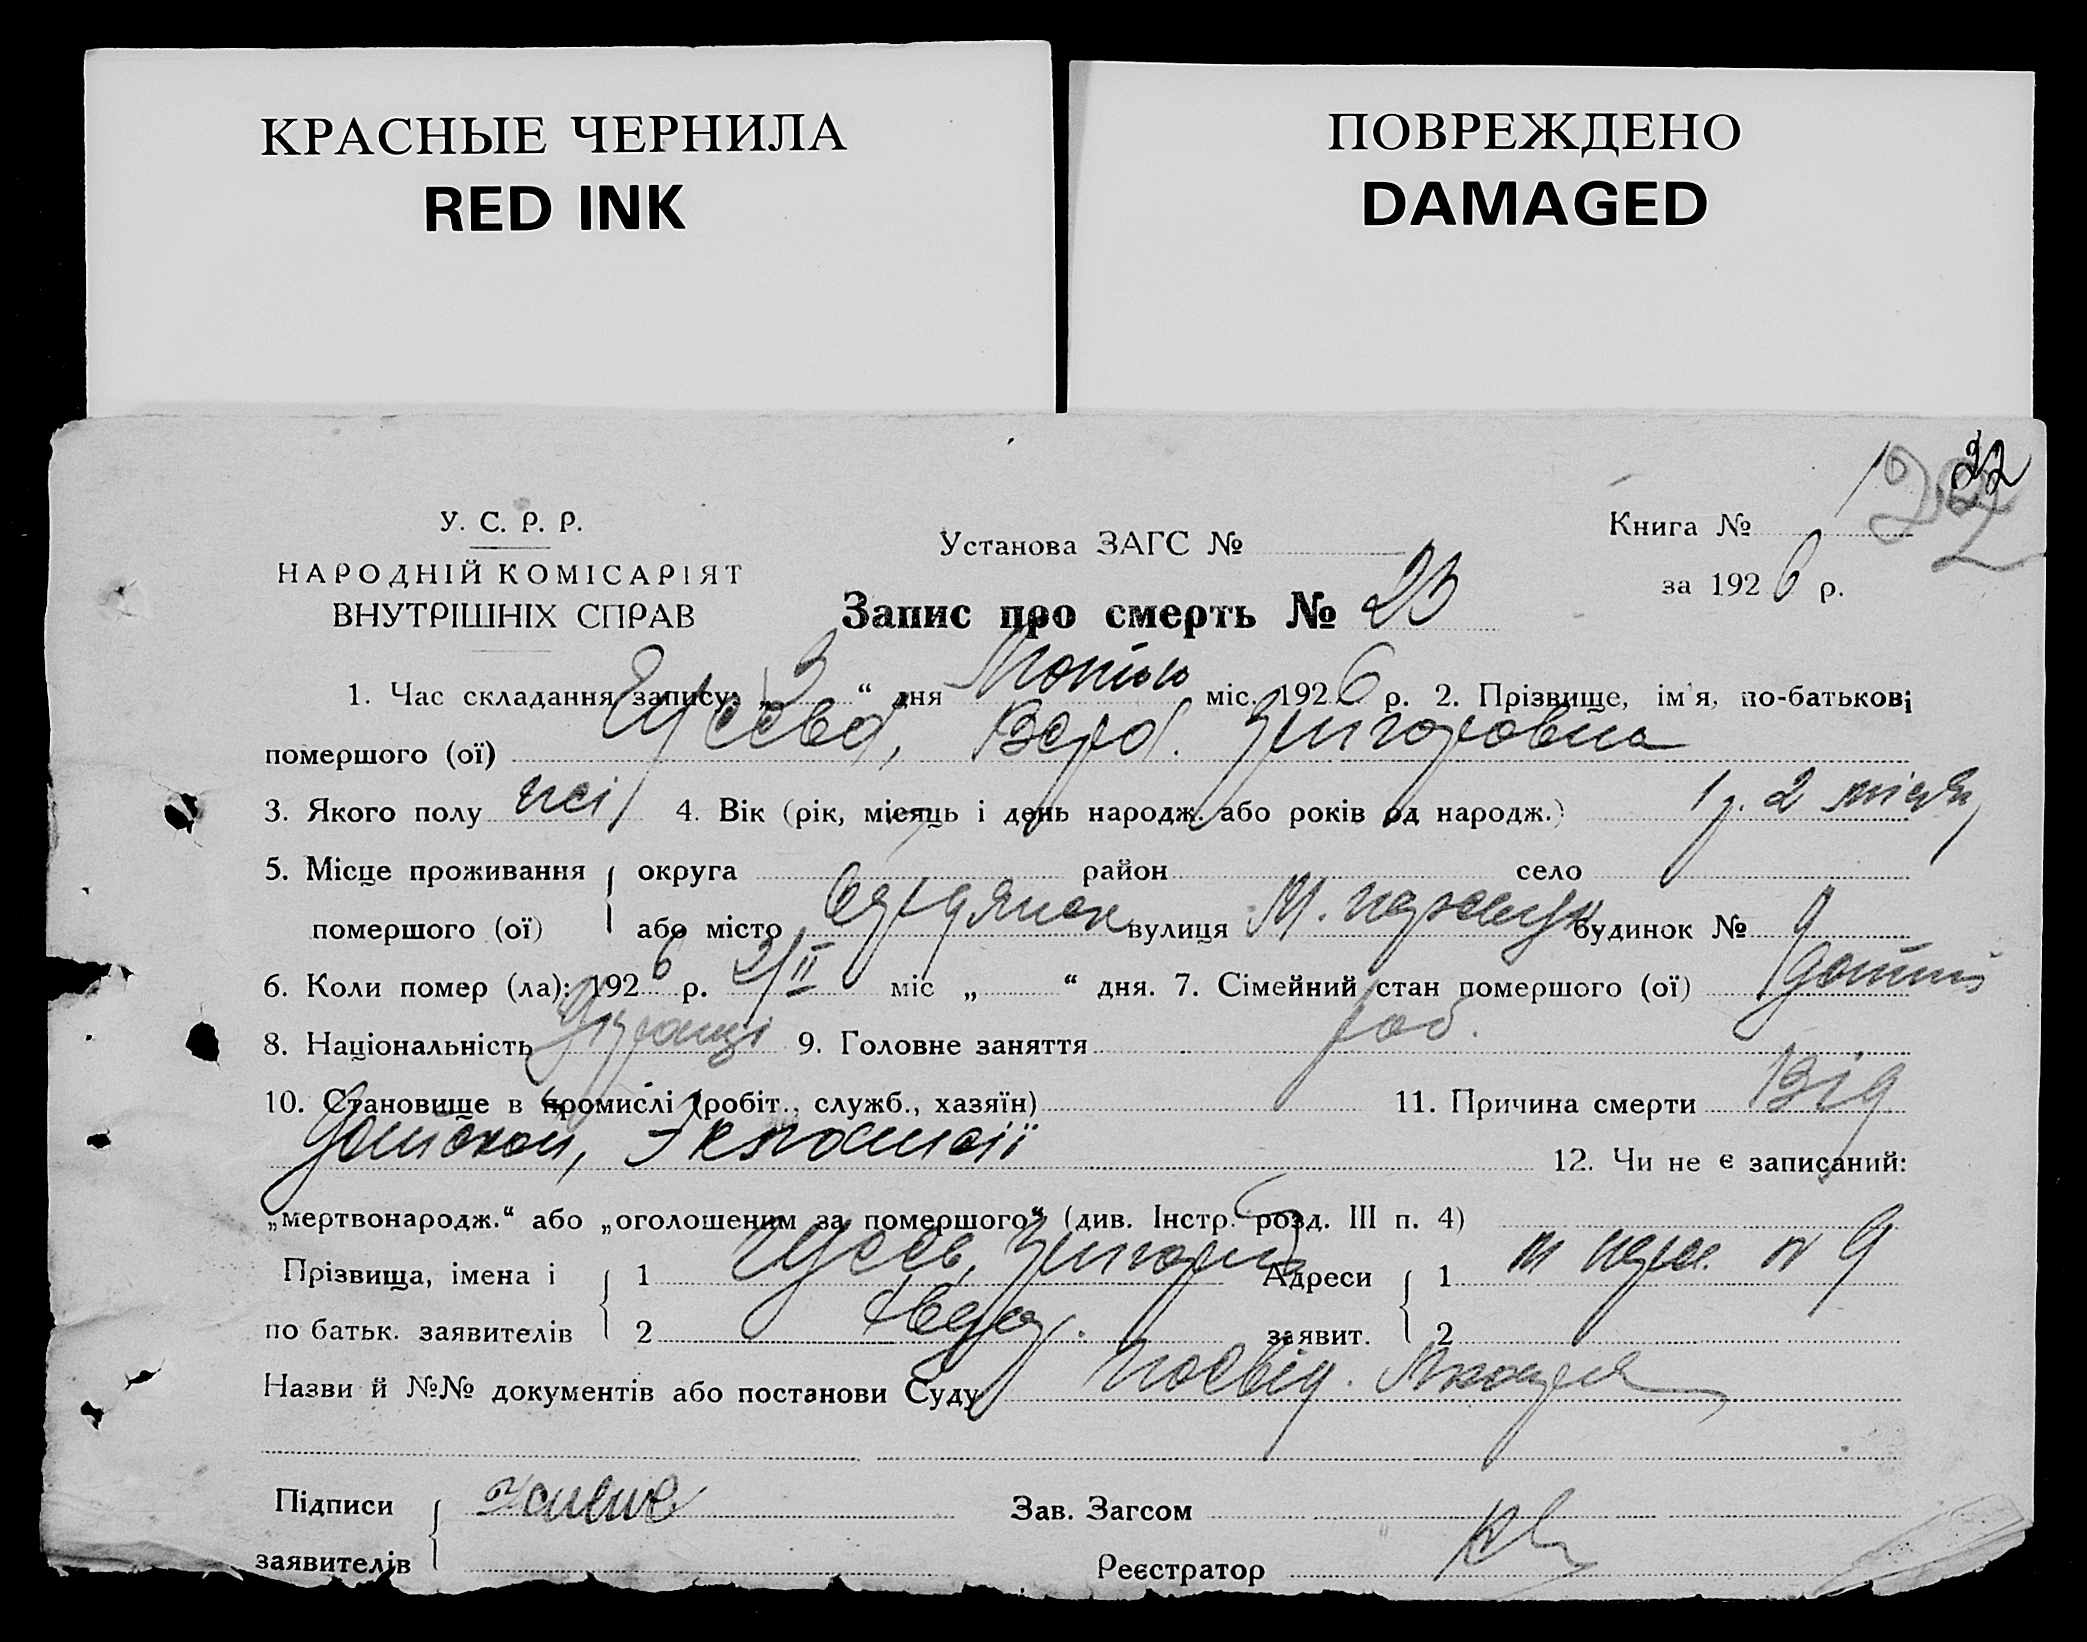 КРАСНЫЕ ЧЕРНИЛА
RED INK
ПОВРЕЖДЕНО
DAMAGED
22
У. С. Р. Р.
НАРОДНІЙ КОМІСАРІЯТ
ВНУТРІШНІХ СПРАВ
Установа ЗАГС №
Книга №
за 1926 р.
Запис про смерть № 23
1. Час складання запису: „3“ дня лютого міс. 1926 р. 2. Прізвище, ім'я, по-батькові
помершого (ої) Гусєва, Вєра. Григоровна
3. Якого полу жі 4. Вік (рік, місяць і день народж. або років од народж.) 1 р. 2 місяц
5. Місце проживання помершого (ої) округа район село
або місто вулиця будинок № 9
6. Коли помер (ла): 1926 р. 2/II міс „ “ дня. 7. Сімейний стан помершого (ої)
8. Національність 9. Головне заняття роб.
10. Становище в промислі (робіт., служб., хазяїн) 11. Причина смерти Від
12. Чи не є записаний:
„мертвонародж.“ або „оголошеним за помершого“ (див. Інстр. розд. III п. 4)
Прізвища, імена і по батьк. заявителів 1 Гусєв, Григорій Адреси заявит. 1 9
2 2
Назви й №№ документів або постанови Суду посвід. лікаря
Підписи заявителів
Зав. Загсом
Реєстратор